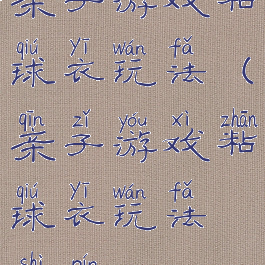 亲子游戏粘
qiú yī wán fǎ
球衣玩法（
qīn zǐ yóu xì zhān
亲子游戏粘
qiú yī wán fǎ
球衣玩法
shì pín